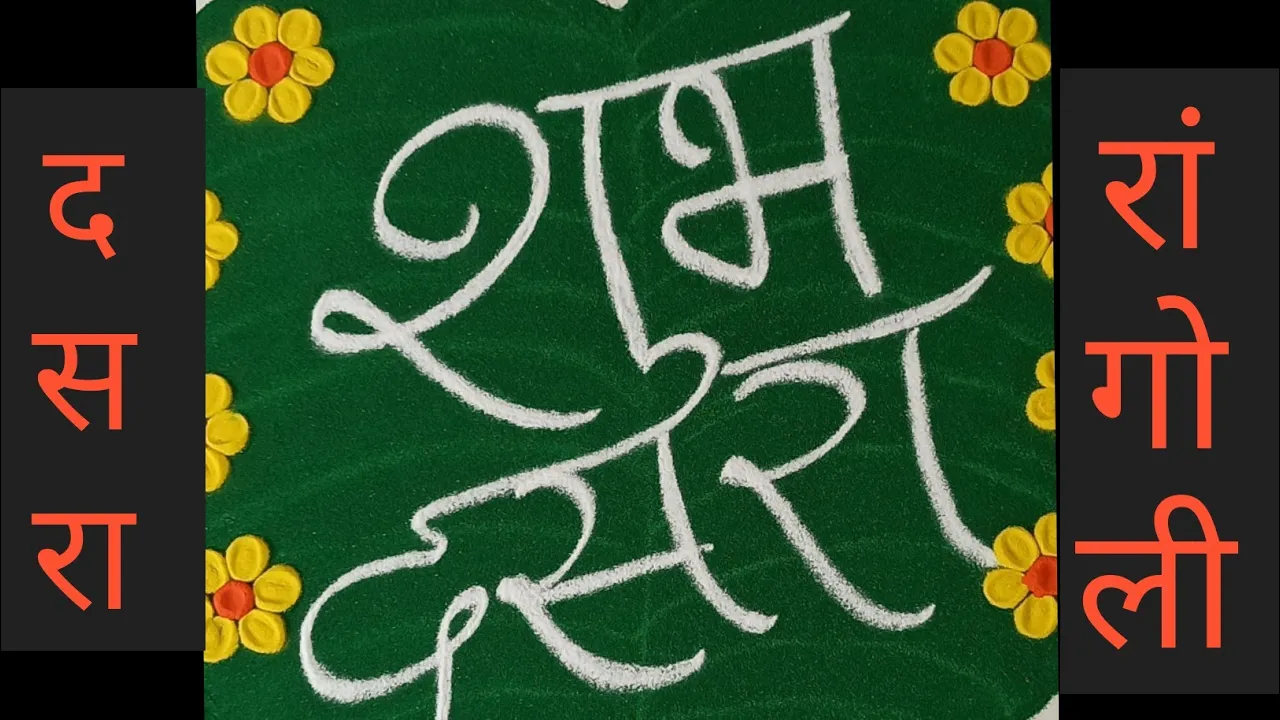 दसरा
शुभ
दसरा
रांगोली